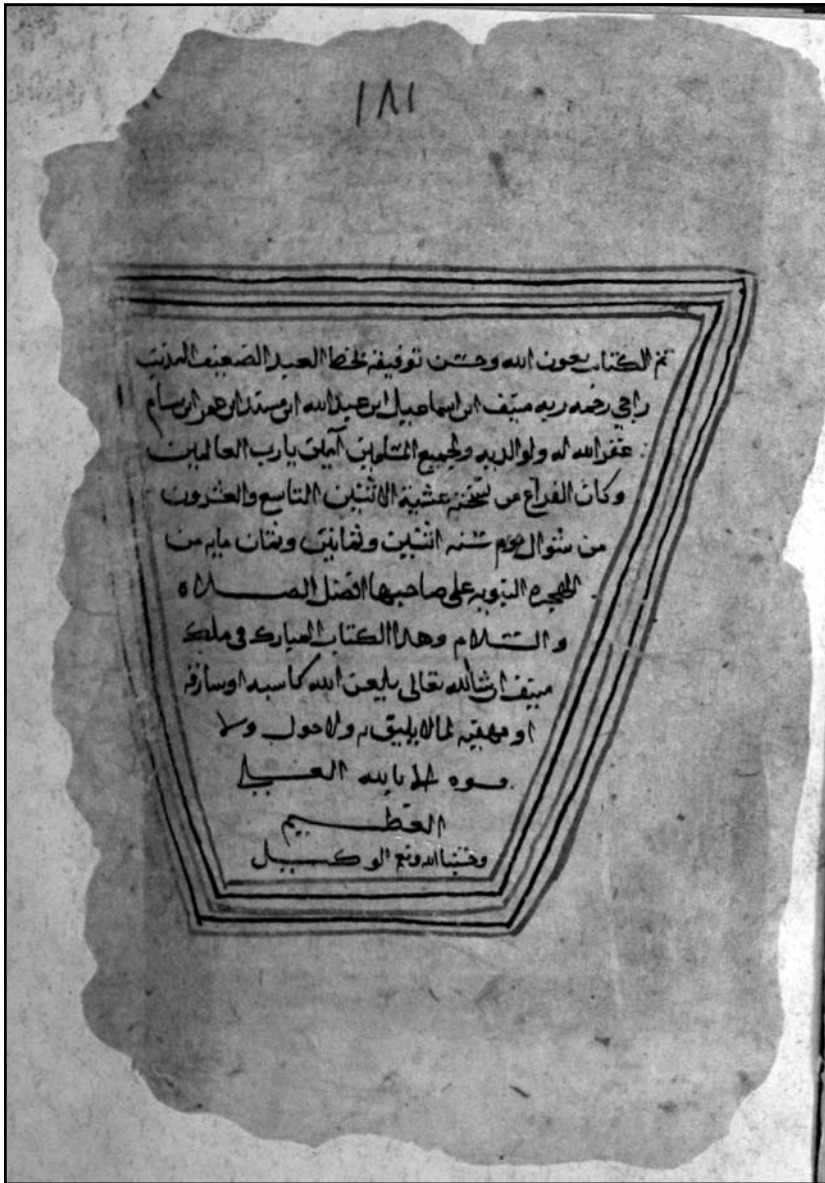 ١٨١
تم الكتاب بعون الله وحسن توفيقه بخط العبد الضعيف المذنب
راجي رحمه ربه ابن اسماعيل ابن عبد الله ابن ابن عمر ابن
غفر الله له ولوالديه ولجميع المسلمين آمين يا رب العالمين
وكان الفراغ من نسخته عشية الاثنين التاسع والعشرون
من شوال سنه اثنتين وثمانين وثمان مايه من
الهجره النبويه على صاحبها افضل الصلاه
والسلام وهذا الكتاب المبارك في ملك
ان شا الله تعالى الله كاسبه او سارقه
او لمن لا يليق ولا حول ولا
قوه الا بالله العلي
العظيم
وحسبنا الله ونعم الوكيل